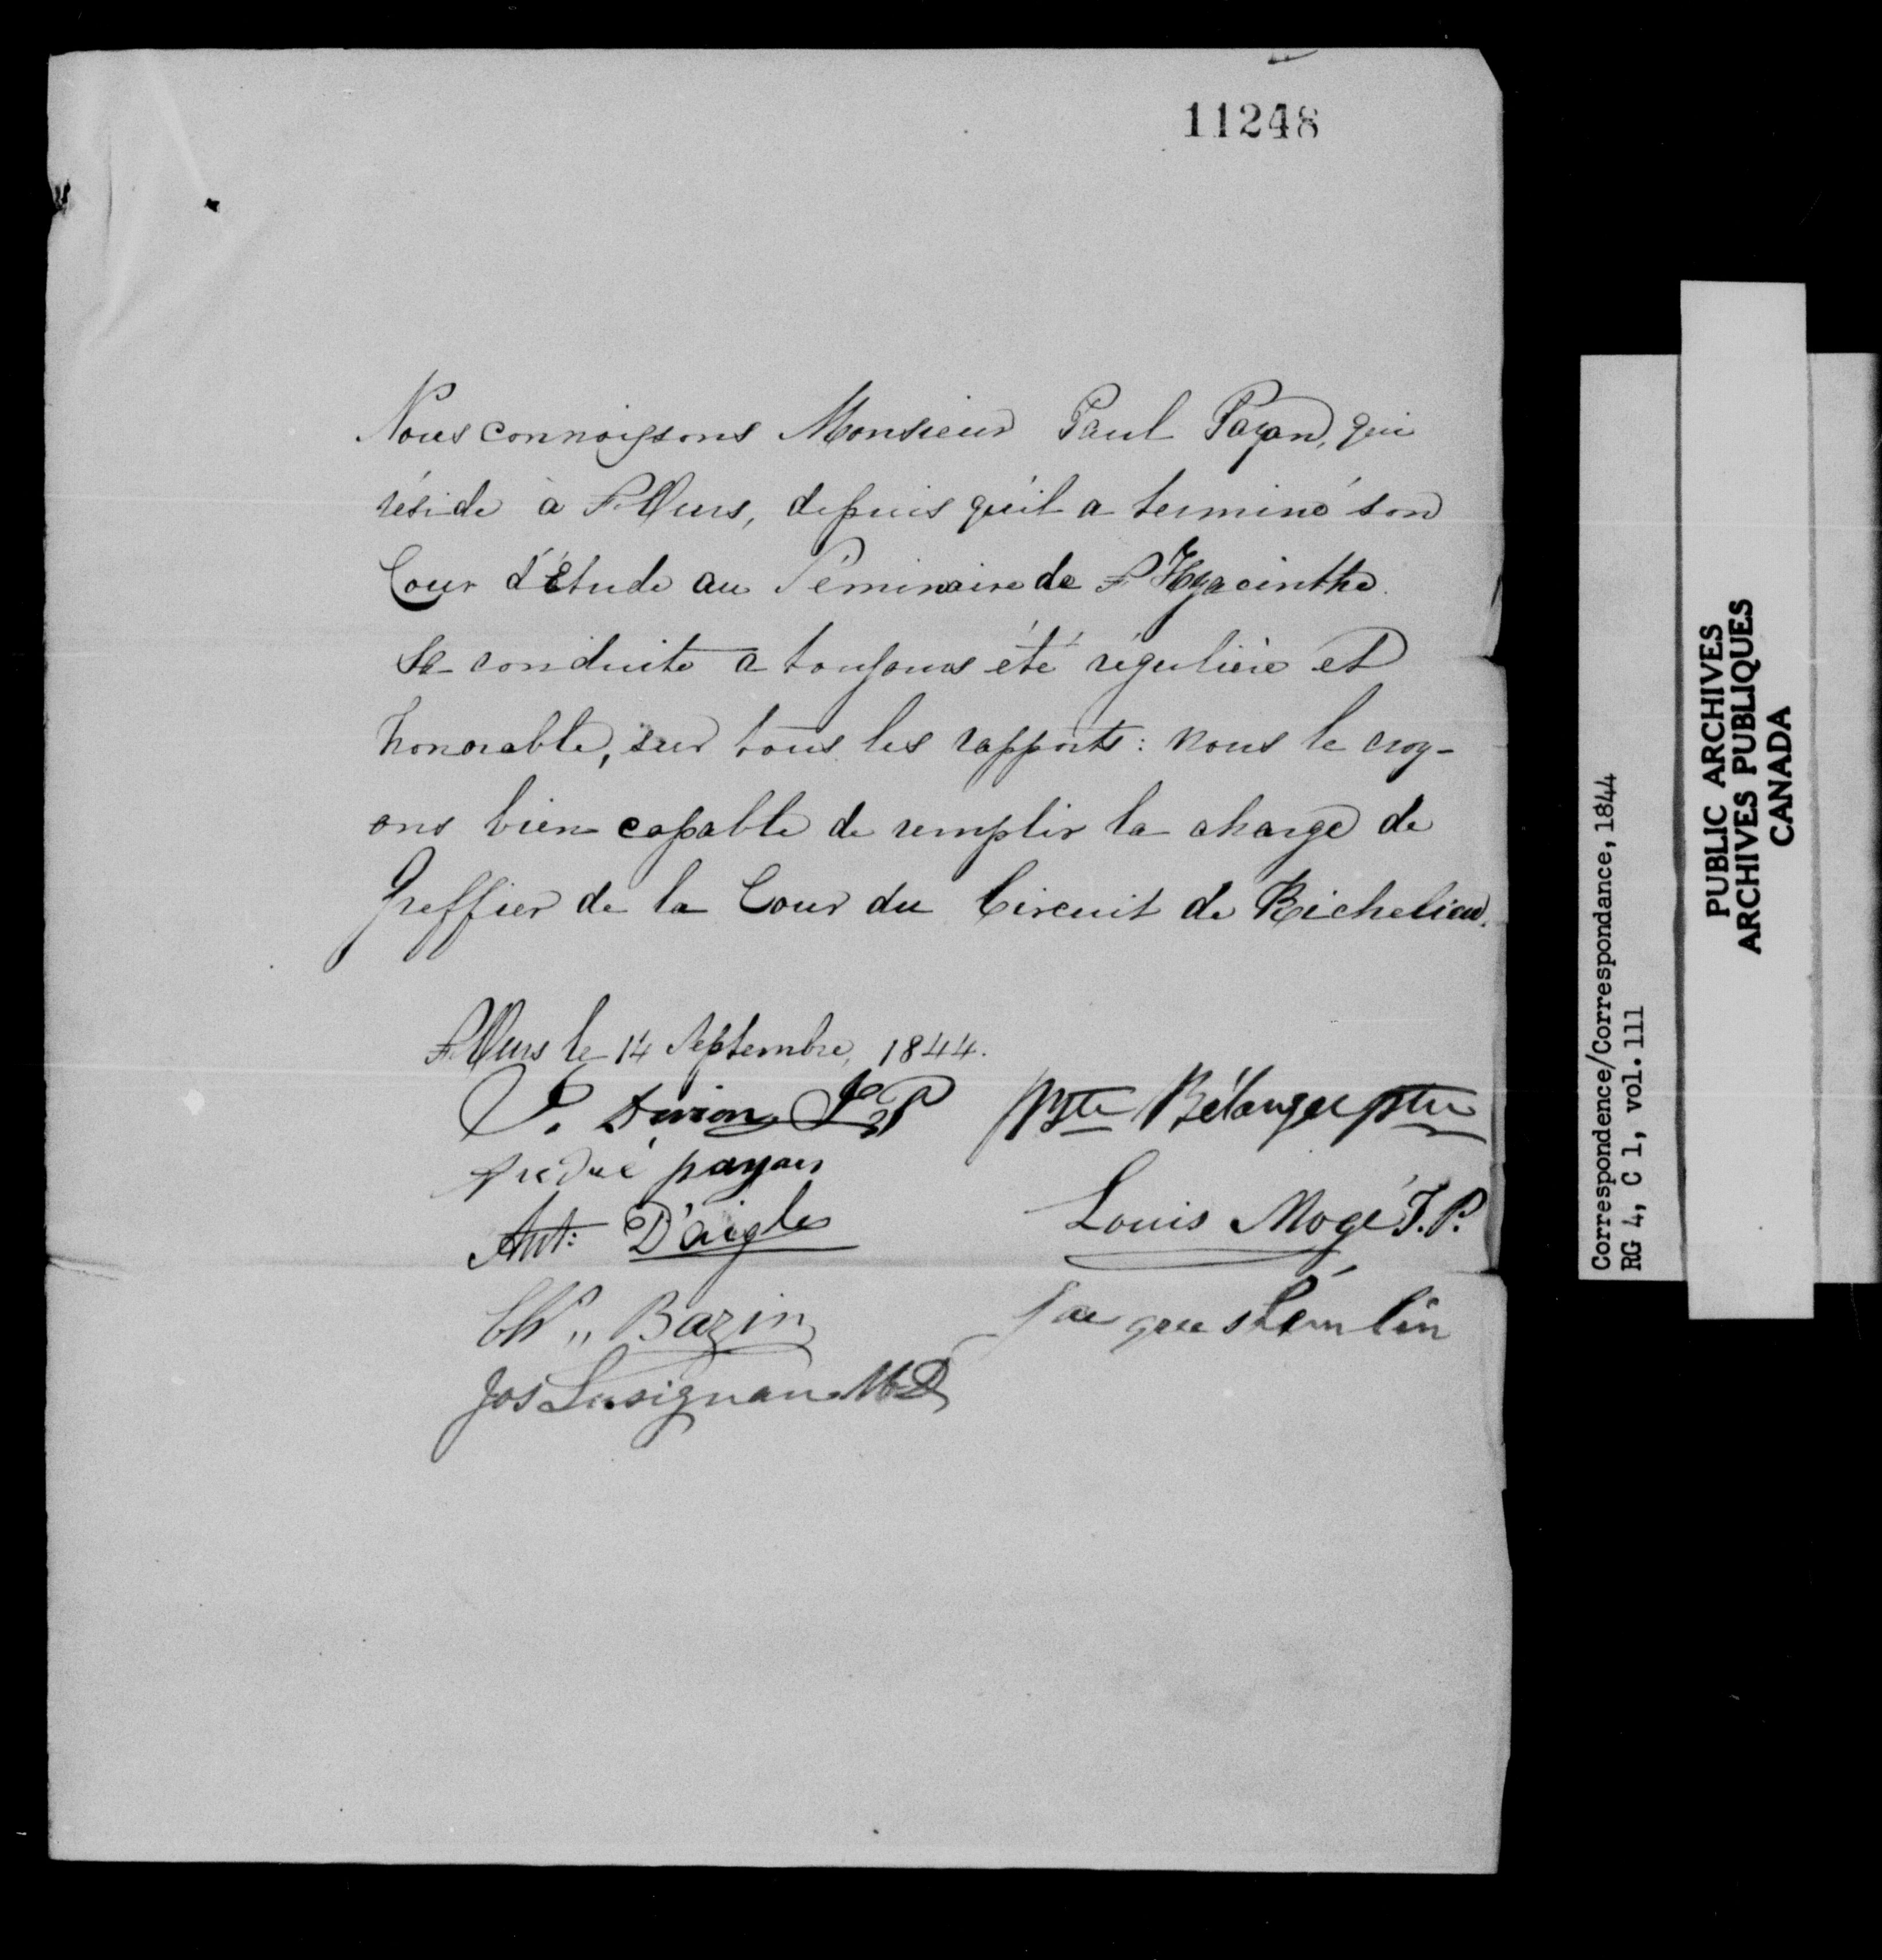 11248
Nous connoissons Monsieur Paul Payan, qui
réside à St Ours, depuis qu'il a terminé son
Cour d'Etude au Séminaire de St Hyacinthe.
Sa conduite a toujours été régulière et
honorable, sur tous les rapports : nous le croy-
ons bien capable de remplir la charge de
Greffier de la Cour du Circuit de Richelieu.
St Ours le 14 Septembre, 1844.
P. JP
Bte Bélanger ptre
André payan
Louis Mogé J.P.
Ant: D'aigle
Chs Bazin
Jacques
Jos Lusignan MD
Correspondence/Correspondance, 1844
RG 4, C 1, vol. 111
PUBLIC ARCHIVES
ARCHIVES PUBLIQUES
CANADA